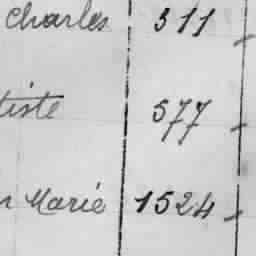 Charles 311 -
tiste 577 -
Marie 1524 -